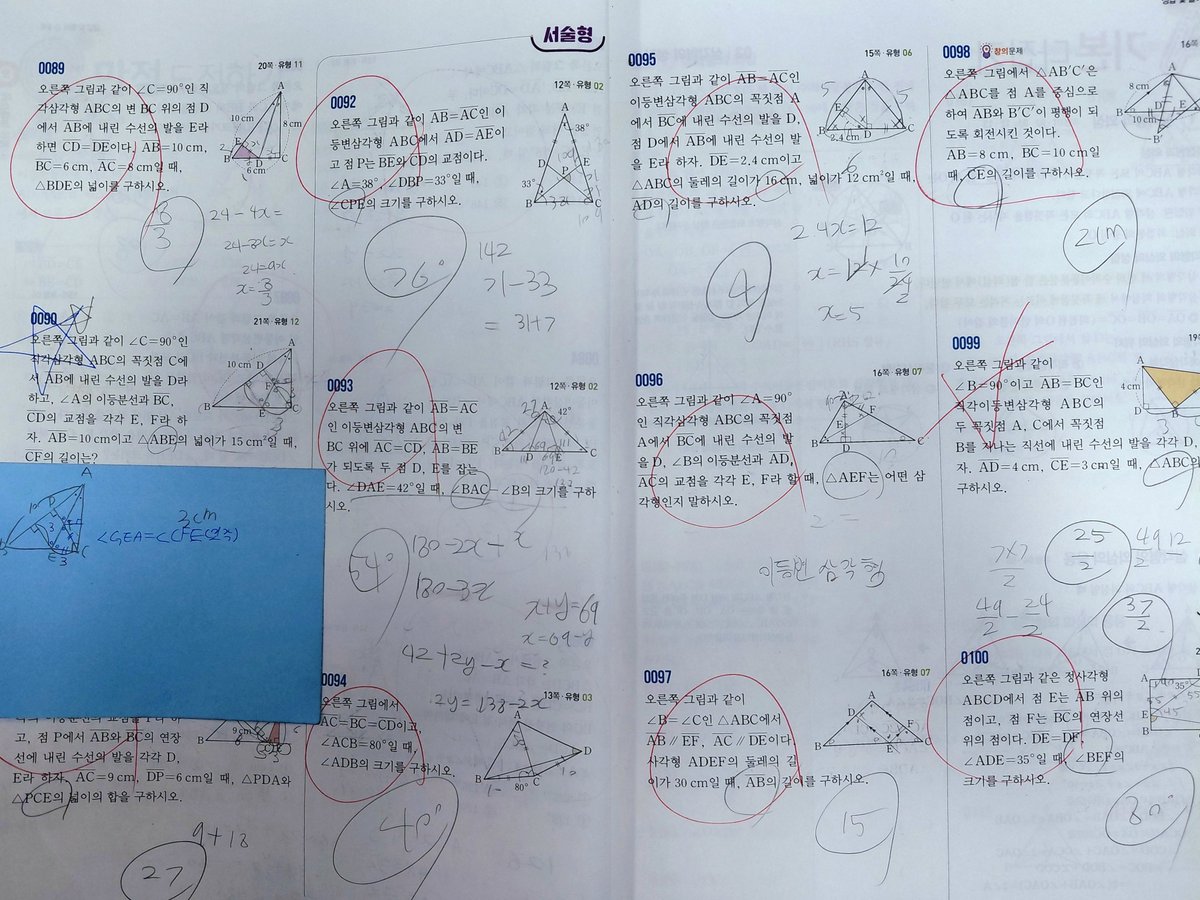 서술형
0089
20쪽·유형 11
오른쪽 그림과 같이 ∠C=90°인 직
각삼각형 ABC의 변 BC 위의 점 D
에서 AB에 내린 수선의 발을 E라
하면 CD=DE이다. AB=10 cm,
BC=6 cm, AC=8 cm일 때,
△BDE의 넓이를 구하시오.
10 cm
8 cm
6 cm
8/3
24-4x=
24-8x=x
24=9x
x=8/3
0090
21쪽·유형 12
오른쪽 그림과 같이 ∠C=90°인
직각삼각형 ABC의 꼭짓점 C에
서 AB에 내린 수선의 발을 D라
하고, ∠A의 이등분선과 BC,
CD의 교점을 각각 E, F라 하
자. AB=10 cm이고 △ABE의 넓이가 15 cm²일 때,
CF의 길이는?
10 cm
3cm
고, 점 P에서 AB와 BC의 연장
선에 내린 수선의 발을 각각 D,
E라 하자. AC=9 cm, DP=6 cm일 때, △PDA와
△PCE의 넓이의 합을 구하시오.
9 cm
9+18
27
0092
12쪽·유형 02
오른쪽 그림과 같이 AB=AC인 이
등변삼각형 ABC에서 AD=AE이
고 점 P는 BE와 CD의 교점이다.
∠A=38°, ∠DBP=33°일 때,
∠CPE의 크기를 구하시오.
38°
33°
76°
142
71-33
0093
12쪽·유형 02
오른쪽 그림과 같이 AB=AC
인 이등변삼각형 ABC의 변
BC 위에 AC=CD, AB=BE
가 되도록 두 점 D, E를 잡는
다. ∠DAE=42°일 때, ∠BAC-∠B의 크기를 구하
시오.
42°
54°
180-2x+x
180-3x
x+y=69
x=69-y
42+2y-x=?
2y=138-2x
0094
13쪽·유형 03
오른쪽 그림에서
AC=BC=CD이고,
∠ACB=80°일 때,
∠ADB의 크기를 구하시오.
80°
40°
0095
15쪽·유형 06
오른쪽 그림과 같이 AB=AC인
이등변삼각형 ABC의 꼭짓점 A
에서 BC에 내린 수선의 발을 D,
점 D에서 AB에 내린 수선의 발
을 E라 하자. DE=2.4 cm이고
△ABC의 둘레의 길이가 16 cm, 넓이가 12 cm²일 때,
AD의 길이를 구하시오.
2.4 cm
4
2.4x=12
x=5
0096
16쪽·유형 07
오른쪽 그림과 같이 ∠A=90°
인 직각삼각형 ABC의 꼭짓점
A에서 BC에 내린 수선의 발
을 D, ∠B의 이등분선과 AD,
AC의 교점을 각각 E, F라 할 때, △AEF는 어떤 삼
각형인지 말하시오.
이등변 삼각형
0097
16쪽·유형 07
오른쪽 그림과 같이
∠B=∠C인 △ABC에서
AB∥EF, AC∥DE이다.
사각형 ADEF의 둘레의 길
이가 30 cm일 때, AB의 길이를 구하시오.
15
0098
창의문제
오른쪽 그림에서 △AB′C′은
△ABC를 점 A를 중심으로
하여 AB와 B′C′이 평행이 되
도록 회전시킨 것이다.
AB=8 cm, BC=10 cm일
때, CE의 길이를 구하시오.
8 cm
10 cm
2cm
0099
오른쪽 그림과 같이
∠B=90°이고 AB=BC인
직각이등변삼각형 ABC의
두 꼭짓점 A, C에서 꼭짓점
B를 지나는 직선에 내린 수선의 발을 각각 D,
자. AD=4 cm, CE=3 cm일 때, △ABC의
구하시오.
4 cm
7×7/2
25/2
49/2-24/2
37/2
0100
오른쪽 그림과 같은 정사각형
ABCD에서 점 E는 AB 위의
점이고, 점 F는 BC의 연장선
위의 점이다. DE=DF,
∠ADE=35°일 때, ∠BEF의
크기를 구하시오.
35°
80°